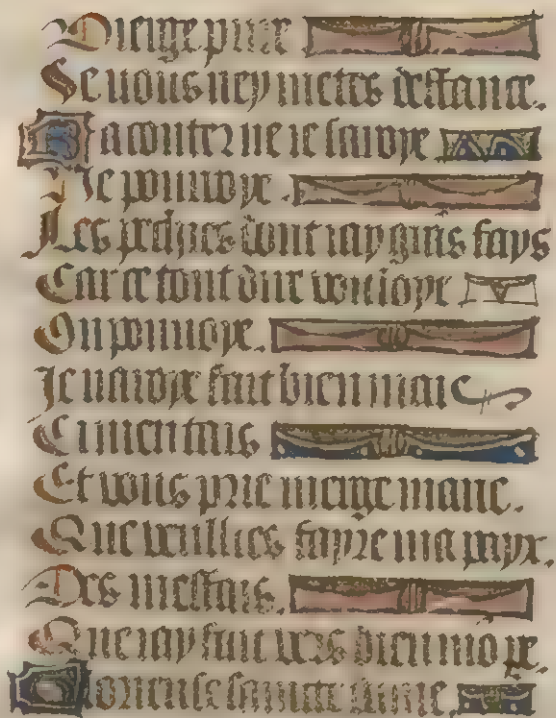 Vierge pure
Se vous ney metes deffance.
Raconter ne ie sauoye
Ne pouuoye.
Les pechies dont iay grãs fays
Car ce tout dire vouloye
Ou pouuoye.
Je nauoye fait bien mais
Cimentais
Et vous prie vierge marie.
Que veullies fayre ma payx.
Des meffais.
Que iay fait vers dieu mõ pe.
Glorieuse saincte anne.